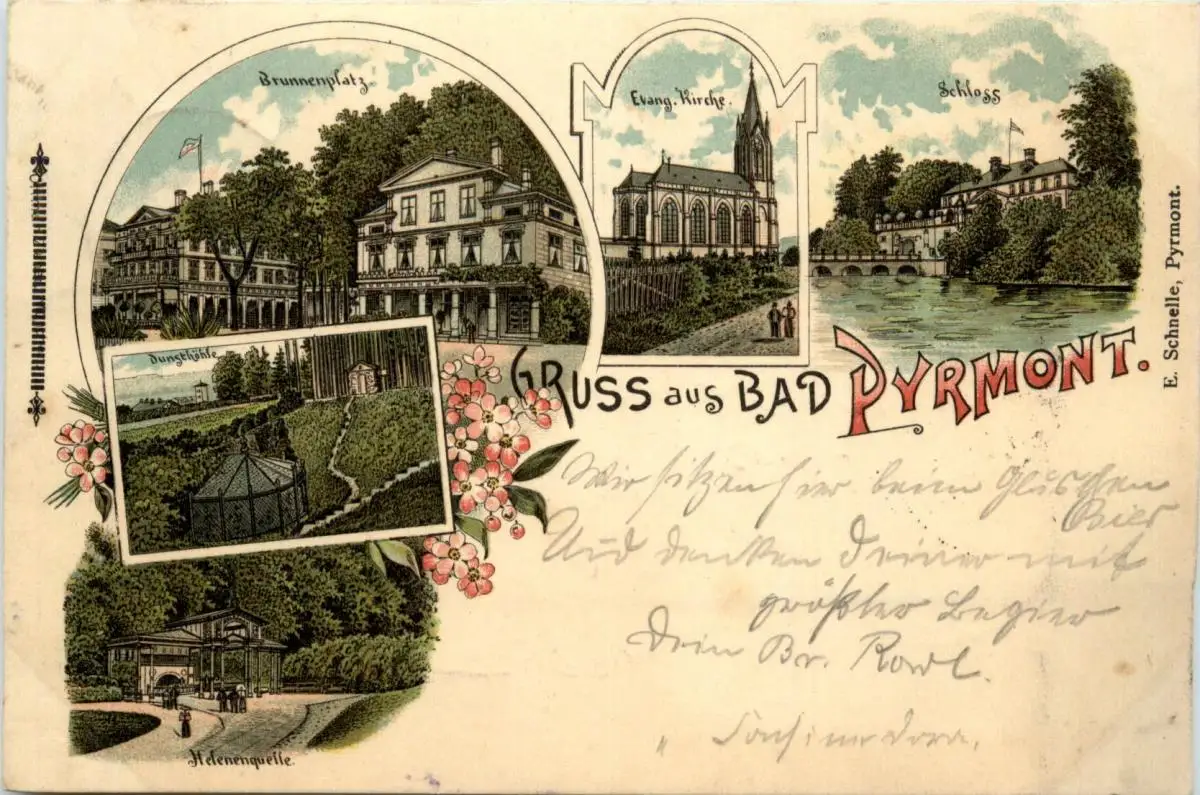 Brunnenplatz
Evang. Kirche.
Schloss
E. Schnelle, Pyrmont.
Dunsthöhle
GRUSS aus BAD PYRMONT.
Wir sitzen hier beim Gläschen
Bier
Und denken Deiner mit
größter Begier
Dein Br. Karl.
" Dora.
Helenenquelle.